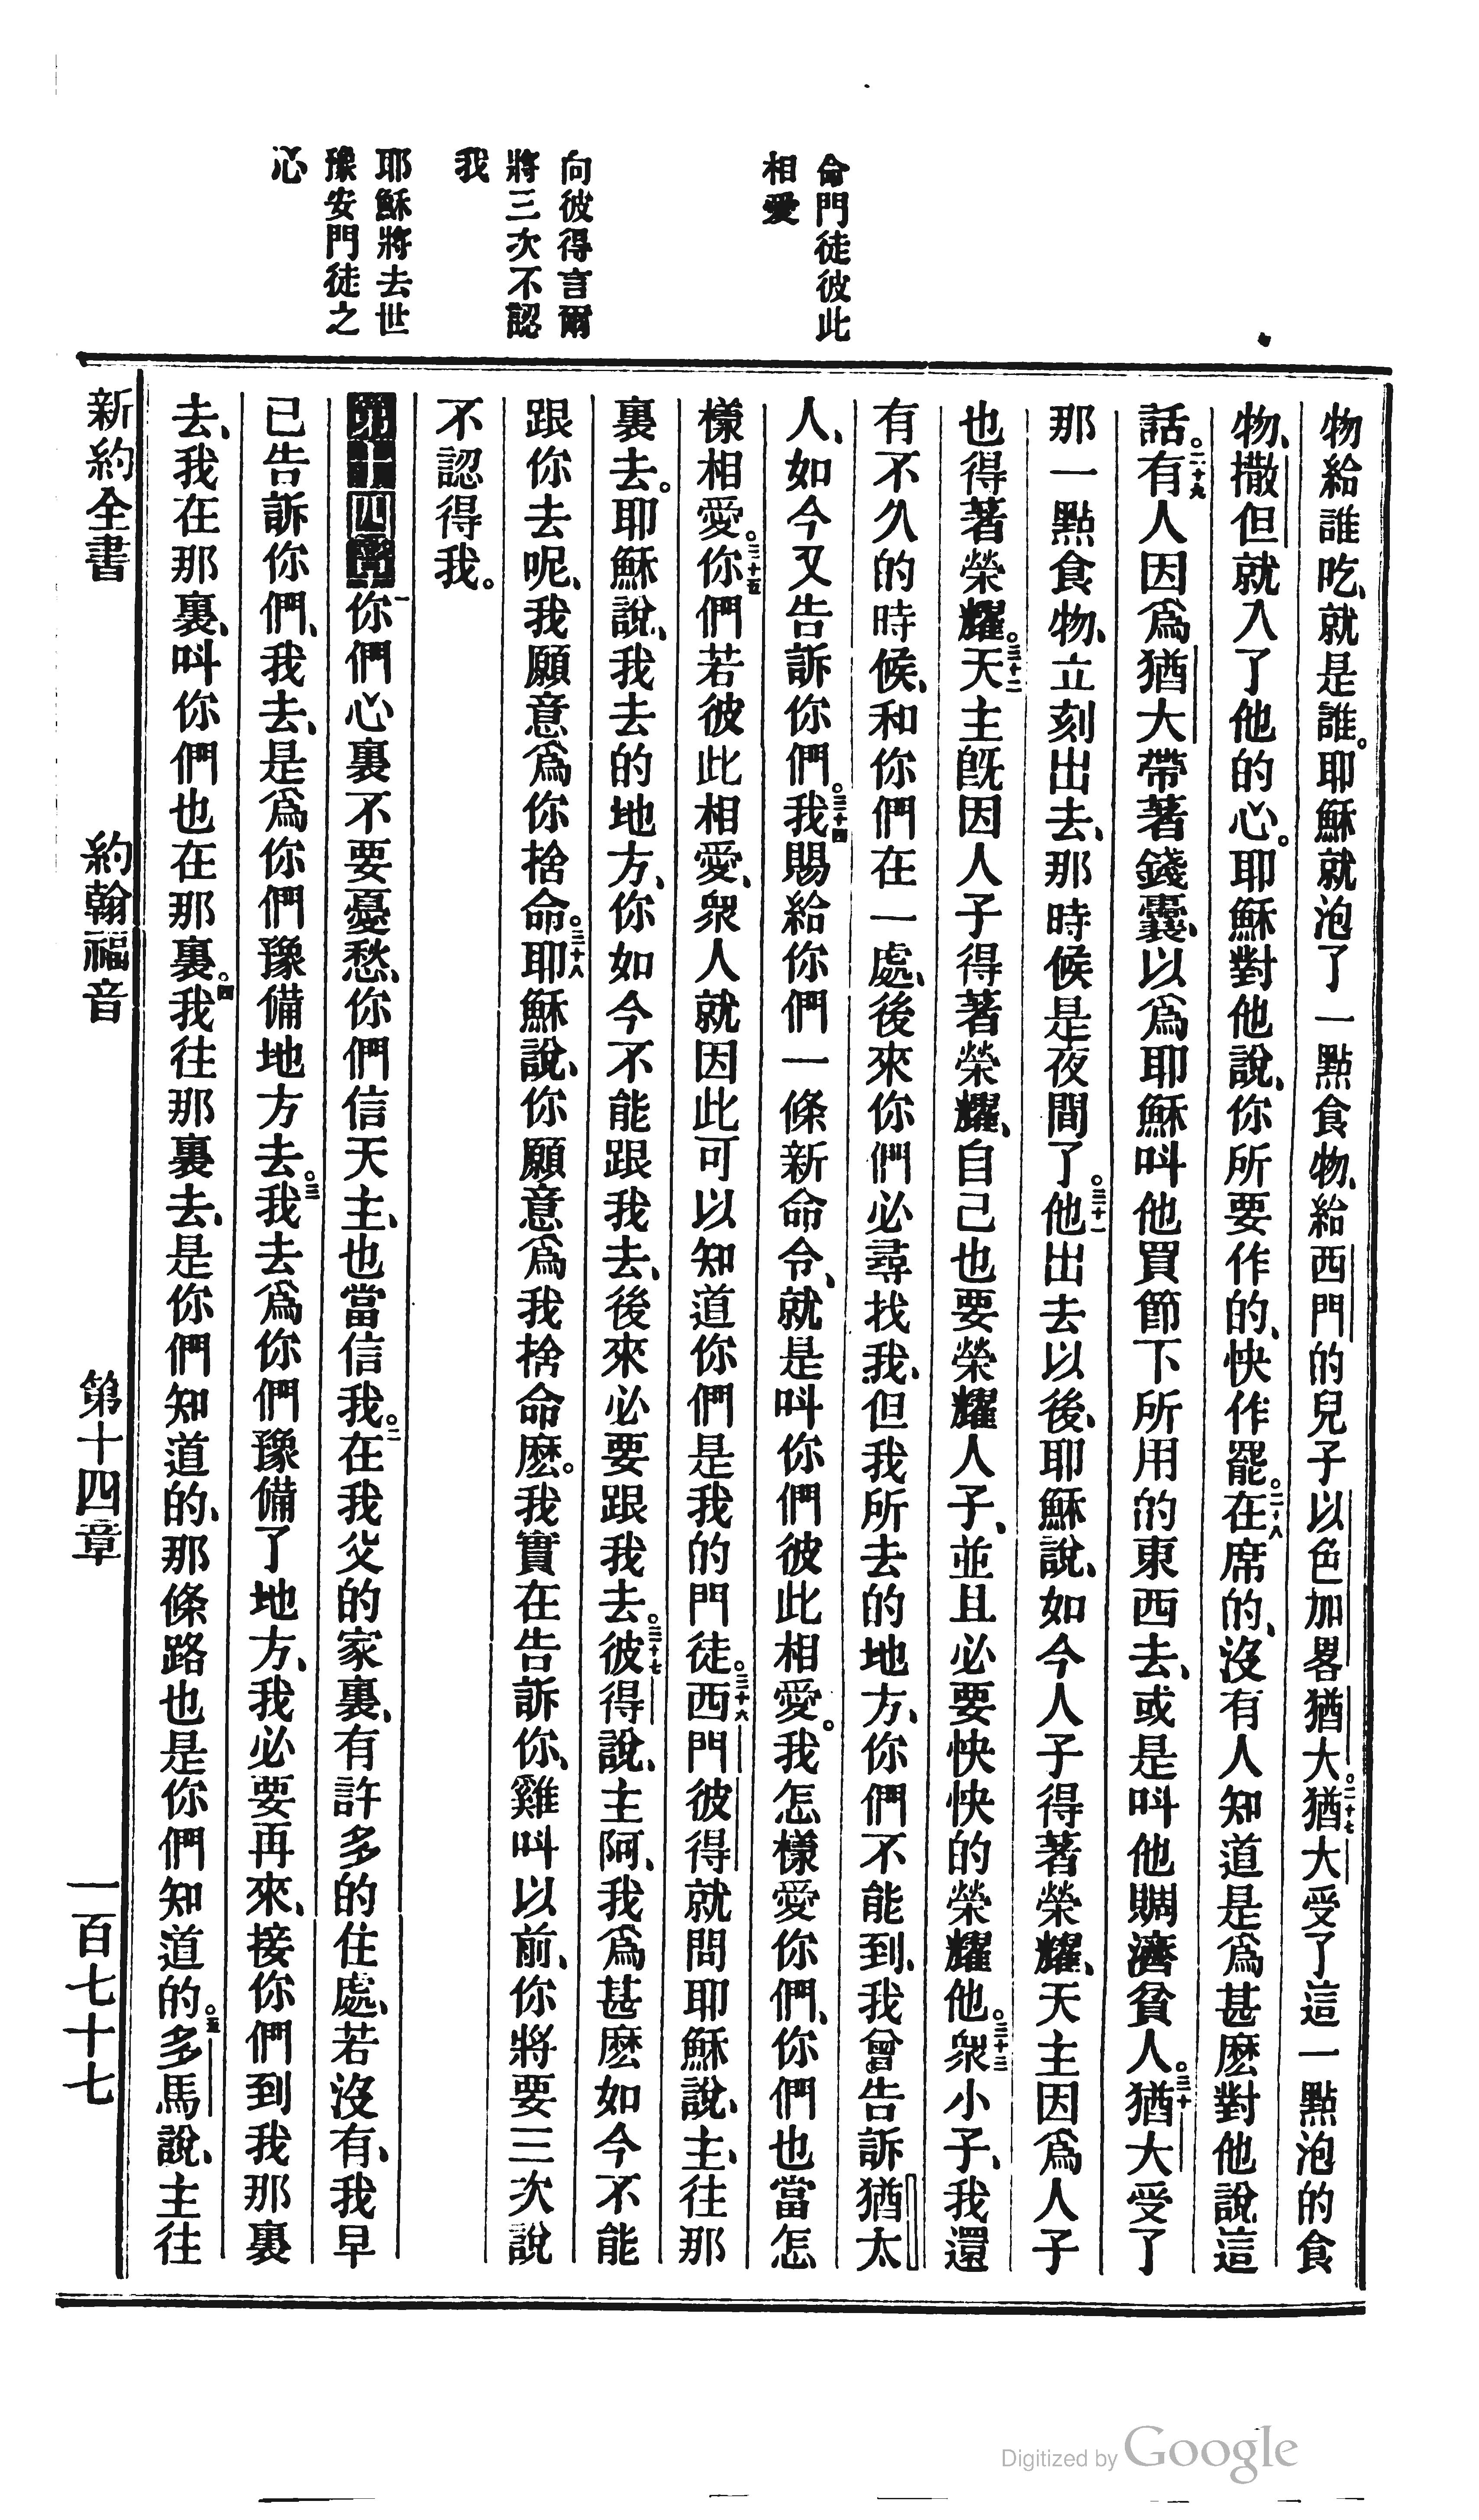 命門徒彼此
相愛
向彼得言爾
將三次不認
我
耶穌將去世
豫安門徒之
心
物給誰吃、就是誰。耶穌就泡了一點食物、給西門的兒子以色加畧猶大。二十七猶大受了這一點泡的食
物、撒但就入了他的心。耶穌對他說、你所要作的、快作罷。二十八在席的、沒有人知道是爲甚麽對他說這
話。二十九有人因爲猶大帶著錢囊、以爲耶穌呌他買節下所用的東西去、或是呌他賙濟貧人。三十猶大受了
那一點食物、立刻出去、那時候是夜間了。三十一他出去以後、耶穌說、如今人子得著榮耀、天主因爲人子
也得著榮耀。三十二天主旣因人子得著榮耀、自己也要榮耀人子、並且必要快快的榮耀他。三十三衆小子、我還
有不久的時候、和你們在一處、後來你們必尋找我、但我所去的地方、你們不能到、我曾告訴猶太
人、如今又告訴你們。三十四我賜給你們一條新命令、就是呌你們彼此相愛。我怎樣愛你們、你們也當怎
樣相愛。三十五你們若彼此相愛、衆人就因此可以知道你們是我的門徒。三十六西門彼得就問耶穌說、主、往那
裏去。耶穌說、我去的地方、你如今不能跟我去、後來必要跟我去。三十七彼得說、主阿、我爲甚麽如今不能
跟你去呢、我願意爲你捨命。三十八耶穌說、你願意爲我捨命麽。我實在告訴你、雞叫以前、你將要三次說
不認得我。
第十四章一你們心裏不要憂愁、你們信天主、也當信我。二在我父的家裏、有許多的住處、若沒有、我早
已告訴你們、我去、是爲你們豫備地方去。三我去爲你們豫備了地方、我必要再來、接你們到我那裏
去、我在那裏、呌你們也在那裏。四我往那裏去、是你們知道的、那條路也是你們知道的。五多馬說、主往
新約全書 約翰福音 第十四章 一百七十七
Digitized by Google